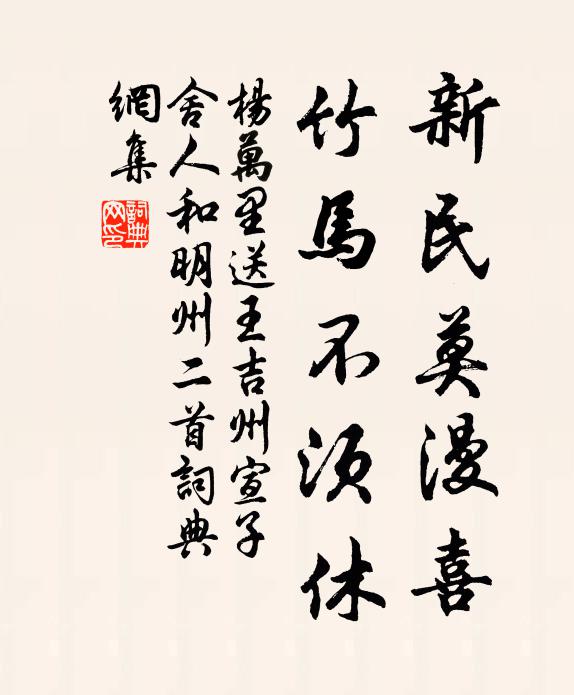 新民莫漫喜
竹馬不須休
楊萬里送王吉州宣子
舍人和明州二首詞典
網集
詞典網印